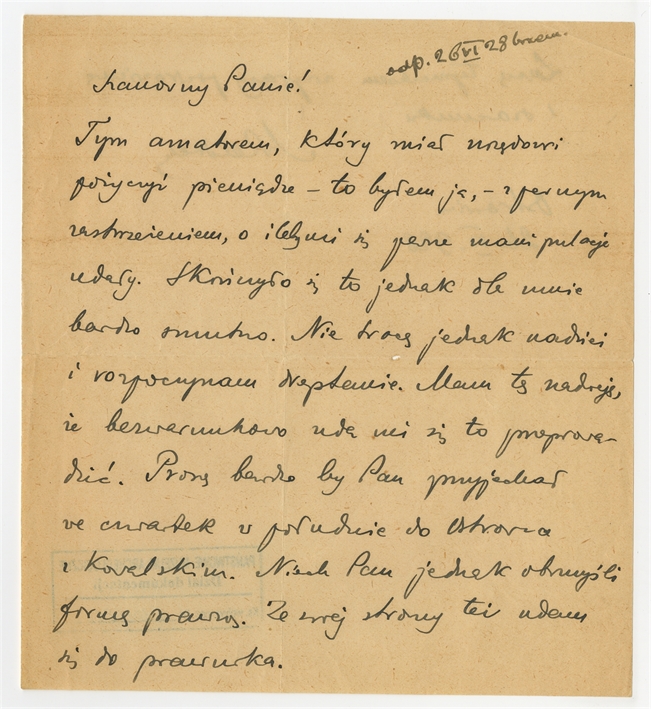 odp. 26 VI 28
Szanowny Panie!
Tym amatorem, który miał urzędowi
pożyczyć pieniądze – to byłem ja, – z pewnym
zastrzeżeniem, o ileby mi się pewne manipulacje
udały. Skończyło się to jednak dla mnie
bardzo smutno. Nie tracę jednak nadziei
i rozpoczynam dreptanie. Mam tę nadzieję,
że bezwarunkowo uda mi się to przeprowa-
dzić. Proszę bardzo by Pan przyjechał
we czwartek w południe do Ostrowca
z Kowalskim. Niech Pan jednak obmyśli
formę prawną. Ze swej strony też udam
się do prawnika.